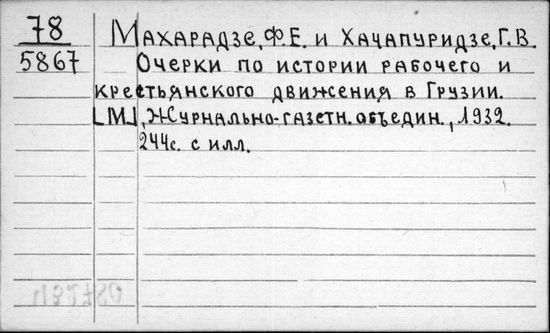 78
5867
Махарадзе, Ф.Е. и Хачапуридзе, Г.В.
Очерки по истории рабочего и
крестьянского движения в Грузии.
[М.], Журнально-газетн. объедин., 1932.
244с. с илл.